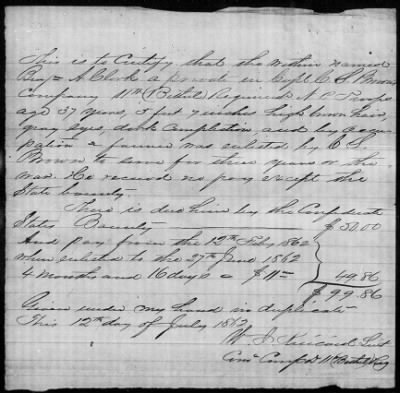 This is to Certify that the within named
Benjn A. Clark a private in Capt C S Brown
Company 11th (Bethel) Regiment N C Troops
age 37 years, 5 feet 7 inches high brown hair,
gray eyes, dark complection, and by occu-
pation a farmer was enlisted by C S.
Brown to serve for three years or the
war. He received no pay except the
State bounty
There is due him by the Confederate
States Bounty $50.00
And pay from the 12th Feby 1862
when enlisted to the 27th June 1862
4 months and 16 days @ $11 = 49.86
$99.86
Given under my hand in duplicate
This 12th day of July 1862
W. J. Kincaid Lieut
Com'g Comp D 11th (Bethel) Reg